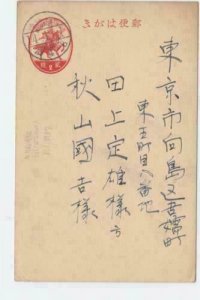 郵便はがき
東京市向島区吾嬬町
東五丁目八番地
田上定雄様方
秋山國吉様